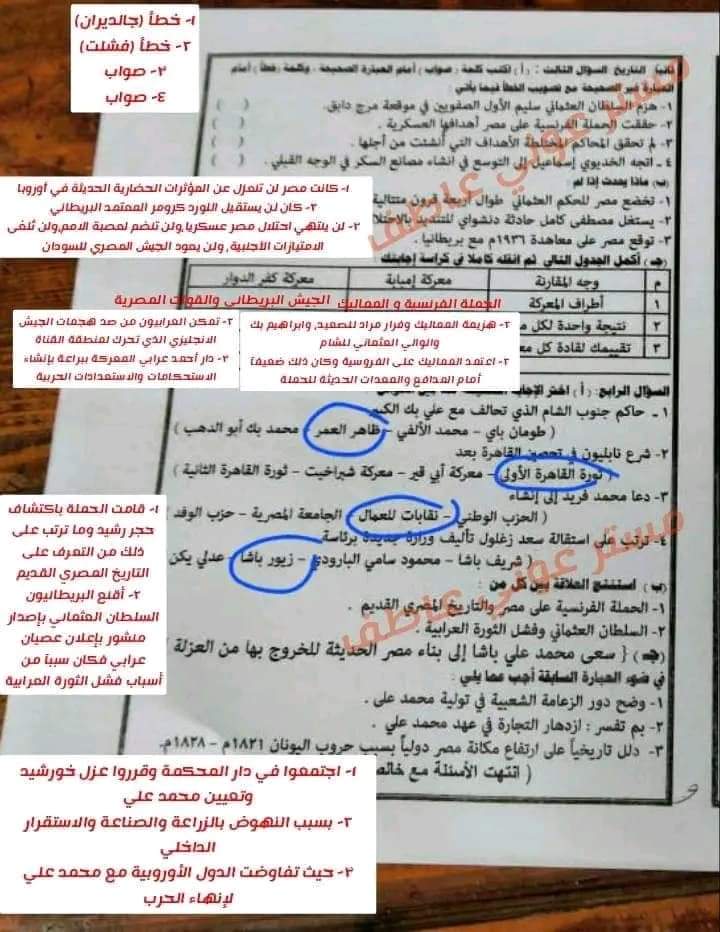 ١- خطأ (جالديران)
٢- خطأ (فشلت)
٣- صواب
٤- صواب
ثانياً: التاريخ السؤال الثالث: (أ) اكتب كلمة (صواب) أمام العبارة الصحيحة، وكلمة (خطأ) أمام
العبارة غير الصحيحة مع تصويب الخطأ فيما يأتي:
١- هزم السلطان العثماني سليم الأول الصفويين في موقعة مرج دابق. ( )
٢- حققت الحملة الفرنسية على مصر أهدافها العسكرية. ( )
٣- لم تحقق المحاكم المختلطة الأهداف التي أنشئت من أجلها. ( )
٤- اتجه الخديوي إسماعيل إلى التوسع في انشاء مصانع السكر في الوجه القبلي. ( )
(ب) ماذا يحدث إذا لم:
١- تخضع مصر للحكم العثماني طوال أربعة قرون متتالية
٢- يستغل مصطفى كامل حادثة دنشواي للتنديد بالاحتلال
٣- توقع مصر على معاهدة ١٩٣٦م مع بريطانيا.
١- كانت مصر لن تنعزل عن المؤثرات الحضارية الحديثة في أوروبا
٢- كان لن يستقيل اللورد كرومر المعتمد البريطاني
٣- لن ينتهي احتلال مصر عسكريا, ولن تنضم لعصبة الامم, ولن تُلغى
الامتيازات الأجنبية, ولن يعود الجيش المصري للسودان
(جـ) أكمل الجدول التالي ثم انقله كاملا في كراسة إجابتك:
م وجه المقارنة معركة إمبابة معركة كفر الدوار
١ أطراف المعركة الحملة الفرنسية و المماليك الجيش البريطاني والقوات المصرية
٢ نتيجة واحدة لكل
٣ تقييمك لقادة كل
٢- هزيمة المماليك وفرار مراد للصعيد, وابراهيم بك
والوالي العثماني للشام
٣- اعتمد المماليك على الفروسية وكان ذلك ضعيفاً
أمام المدافع والمعدات الحديثة للحملة
٢- تمكن العرابيون من صد هجمات الجيش
الانجليزي الذي تحرك لمنطقة القناة
٣- دار أحمد عرابي المعركة ببراعة بإنشاء
الاستحكامات والاستعدادات الحربية
السؤال الرابع: (أ) اختر
١- حاكم جنوب الشام الذي تحالف مع علي بك الكبير
( طومان باي - محمد الألفي - ظاهر العمر - محمد بك أبو الدهب )
٢- شرع نابليون في تحصين القاهرة بعد
( ثورة القاهرة الأولى - معركة أبي قير - معركة شبراخيت - ثورة القاهرة الثانية )
٣- دعا محمد فريد إلى إنشاء
( الحزب الوطني - نقابات للعمال - الجامعة المصرية - حزب الوفد )
٤- ترتب على استقالة سعد زغلول تأليف وزارة جديدة برئاسة
( شريف باشا - محمود سامي البارودي - زيور باشا - عدلي يكن )
(ب) استنتج العلاقة بين كل من:
١- الحملة الفرنسية على مصر والتاريخ المصري القديم.
٢- السلطان العثماني وفشل الثورة العرابية.
١- قامت الحملة باكتشاف
حجر رشيد وما ترتب على
ذلك من التعرف على
التاريخ المصري القديم
٢- أقنع البريطانيون
السلطان العثماني بإصدار
منشور بإعلان عصيان
عرابي فكان سبباً من
أسباب فشل الثورة العرابية
(جـ) { سعى محمد علي باشا إلى بناء مصر الحديثة للخروج بها من العزلة }
في ضوء العبارة السابقة أجب عما يلي:
١- وضح دور الزعامة الشعبية في تولية محمد على.
٢- بم تفسر: ازدهار التجارة في عهد محمد علي.
٣- دلل تاريخياً على ارتفاع مكانة مصر دولياً بسبب حروب اليونان ١٨٢١م - ١٨٢٨م.
( انتهت الأسئلة مع خالص
١- اجتمعوا في دار المحكمة وقرروا عزل خورشيد
وتعيين محمد علي
٢- بسبب النهوض بالزراعة والصناعة والاستقرار
الداخلي
٣- حيث تفاوضت الدول الأوروبية مع محمد علي
لإنهاء الحرب
مستر عوني عاطف
مستر عوني عاطف